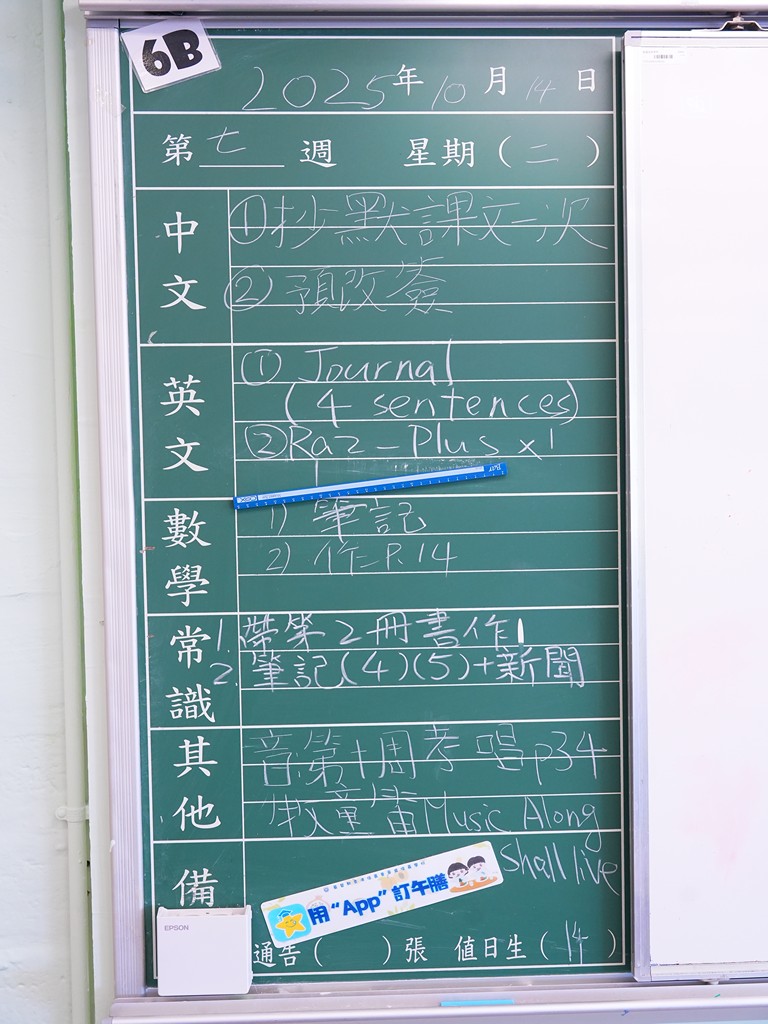 6B
2025年10月14日
第七週 星期(二)
中文
①抄默課文一次
②預改簽
英文
① Journal
(4 sentences)
②Raz-Plus x1
數學
1) 筆記
2) 作-P.14
常識
1. 帶第2冊書作
2. 筆記(4)(5)+新聞
其他
音:第十周考唱p34
牧童笛Music Along
Shall live
備
用“App”訂午膳
EPSON
通告( )張 值日生(14)